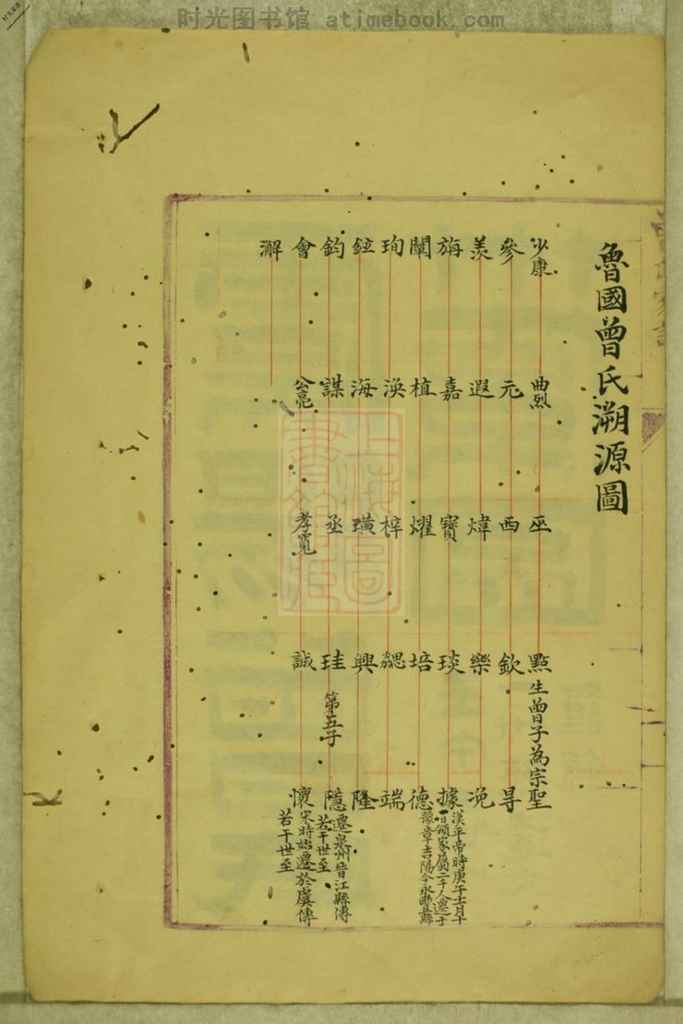 时光图书馆 atimebook.com
魯國曾氏溯源圖
少康 曲烈 巫 點 生曾子為宗聖
參 元 西 欽 㝵
羨 遐 煒 樂 浼
旃 嘉 寶 琰 據 漢平帝時庚午十一月十一日領家屬二千人遷于豫章吉陽今永豐縣
闡 植 燿 培 德
珣 渙 梓 勰 端
鉉 海 璜 興 隆
鈞 謀 丞 珪 第五子 隱 遷泉州晉江縣傳若干世至
會 公亮 孝寬 誠 懷 宋時始遷於虞傳若干世至
澥
上海圖書館藏